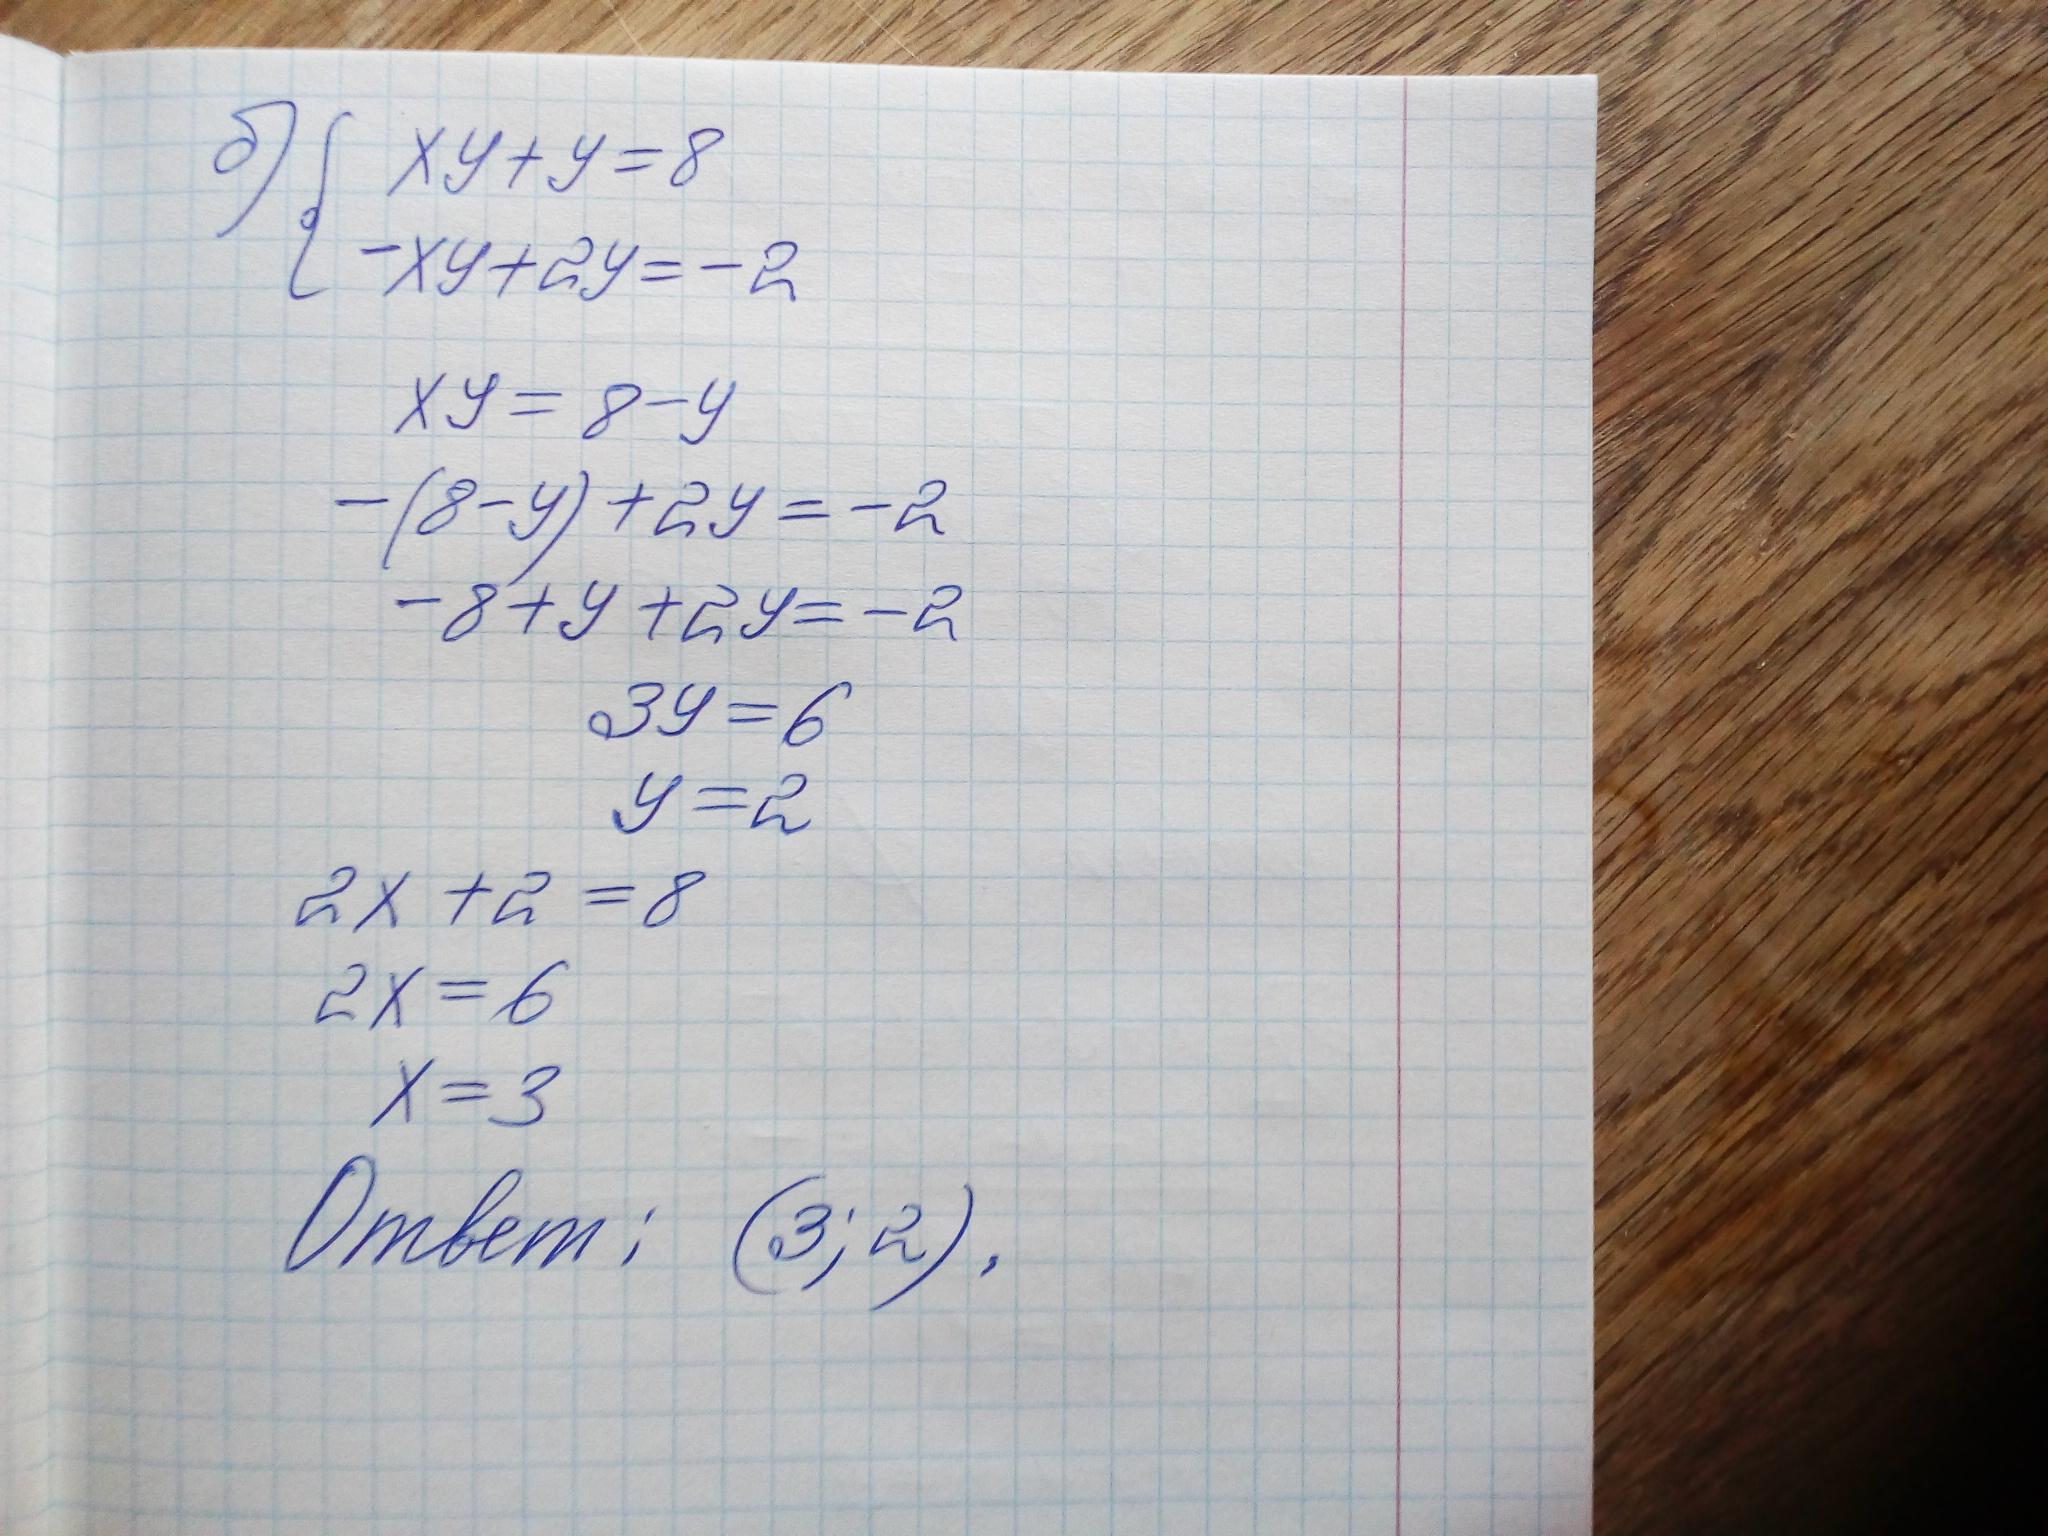 б) { xy+y=8
-xy+2y=-2
xy=8-y
-(8-y)+2y=-2
-8+y+2y=-2
3y=6
y=2
2x+2=8
2x=6
x=3
Ответ: (3;2).